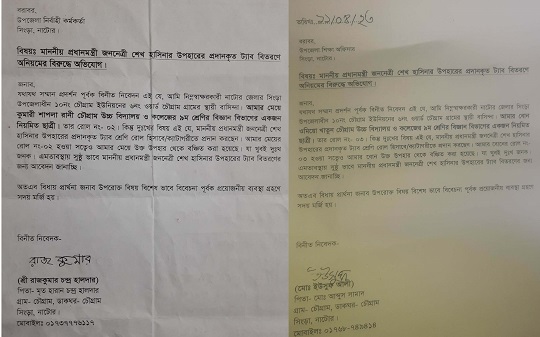 বরাবর,
উপজেলা নির্বাহী কর্মকর্তা
সিংড়া, নাটোর।
বিষয়ঃ মাননীয় প্রধানমন্ত্রী জননেত্রী শেখ হাসিনার উপহারের প্রদানকৃত ট্যাব বিতরণে
অনিয়মের বিরুদ্ধে অভিযোগ।
জনাব,
যথাযথ সম্মান প্রদর্শন পূর্বক বিনীত নিবেদন এই যে, আমি নিম্নস্বাক্ষরকারী নাটোর জেলার সিংড়া
উপজেলাধীন ১০নং চৌগ্রাম ইউনিয়নের ৬নং ওয়ার্ড চৌগ্রাম গ্রামের স্থায়ী বাসিন্দা। আমার মেয়ে
কুমারী শাপলা রানী চৌগ্রাম উচ্চ বিদ্যালয় ও কলেজের ৯ম শ্রেণির বিজ্ঞান বিভাগের একজন
নিয়মিত ছাত্রী। তার রোল নং- ০২। কিন্তু দুঃখের বিষয় এই যে, মাননীয় প্রধানমন্ত্রী জননেত্রী শেখ
হাসিনার উপহারের প্রদানকৃত ট্যাব শ্রেণি রোল হিসাবে/ক্যাটাগরীতে প্রদান করছেন। আমার মেয়ের
রোল নং-০২ হওয়া সত্ত্বেও আমার মেয়ে উক্ত উপহার থেকে বঞ্চিত করা হয়েছে। যা খুবই দুঃখ
জনক। এমতাবস্থায় সুষ্ঠু ভাবে মাননীয় প্রধানমন্ত্রী জননেত্রী শেখ হাসিনার উপহারের ট্যাব বিতরণের
জন্য আবেদন জানাচ্ছি।
অতএব বিধায় প্রার্থনা জনাব উপরোক্ত বিষয় বিশেষ ভাবে বিবেচনা পূর্বক প্রয়োজনীয় ব্যবস্থা গ্রহণে
সদয় মর্জি হয়।
বিনীত নিবেদক-
রাজ কুমার
(শ্রী রাজকুমার চন্দ্র হালদার)
পিতা- মৃত হারান চন্দ্র হালদার
গ্রাম- চৌগ্রাম, ডাকঘর- চৌগ্রাম
সিংড়া, নাটোর।
মোবাইলঃ ০১৭৩৭৭৭৬১১৭
তারিখঃ ২২/০৪/২৩
বরাবর,
উপজেলা শিক্ষা অফিসার
সিংড়া, নাটোর।
বিষয়ঃ মাননীয় প্রধানমন্ত্রী জননেত্রী শেখ হাসিনার উপহারের প্রদানকৃত ট্যাব বিতরণে
অনিয়মের বিরুদ্ধে অভিযোগ।
জনাব,
যথাযথ সম্মান প্রদর্শন পূর্বক বিনীত নিবেদন এই যে, আমি নিম্নস্বাক্ষরকারী নাটোর জেলার সিংড়া
উপজেলাধীন ১০নং চৌগ্রাম ইউনিয়নের ৬নং ওয়ার্ড চৌগ্রাম গ্রামের স্থায়ী বাসিন্দা। আমার মেয়ে
খাতুন চৌগ্রাম উচ্চ বিদ্যালয় ও কলেজের ৯ম শ্রেণির বিজ্ঞান বিভাগের একজন নিয়মিত
ছাত্রী। তার রোল নং- ০৩। কিন্তু দুঃখের বিষয় এই যে, মাননীয় প্রধানমন্ত্রী জননেত্রী শেখ হাসিনার
উপহারের প্রদানকৃত ট্যাব শ্রেণি রোল হিসাবে/ক্যাটাগরীতে প্রদান করছেন। আমার মেয়ের রোল নং-
০৩ হওয়া সত্ত্বেও আমার মেয়ে উক্ত উপহার থেকে বঞ্চিত করা হয়েছে। যা খুবই দুঃখ জনক।
এমতাবস্থায় সুষ্ঠু ভাবে মাননীয় প্রধানমন্ত্রী জননেত্রী শেখ হাসিনার উপহারের ট্যাব বিতরণের জন্য
আবেদন জানাচ্ছি।
অতএব বিধায় প্রার্থনা জনাব উপরোক্ত বিষয় বিশেষ ভাবে বিবেচনা পূর্বক প্রয়োজনীয় ব্যবস্থা গ্রহণে
সদয় মর্জি হয়।
বিনীত নিবেদক-
(মোঃ ইউসুফ আলী)
পিতা- মোঃ আব্দুল সামাদ
গ্রাম- চৌগ্রাম, ডাকঘর- চৌগ্রাম
সিংড়া, নাটোর।
মোবাইলঃ ০১৭৬৮-৭৪৯৪১৪